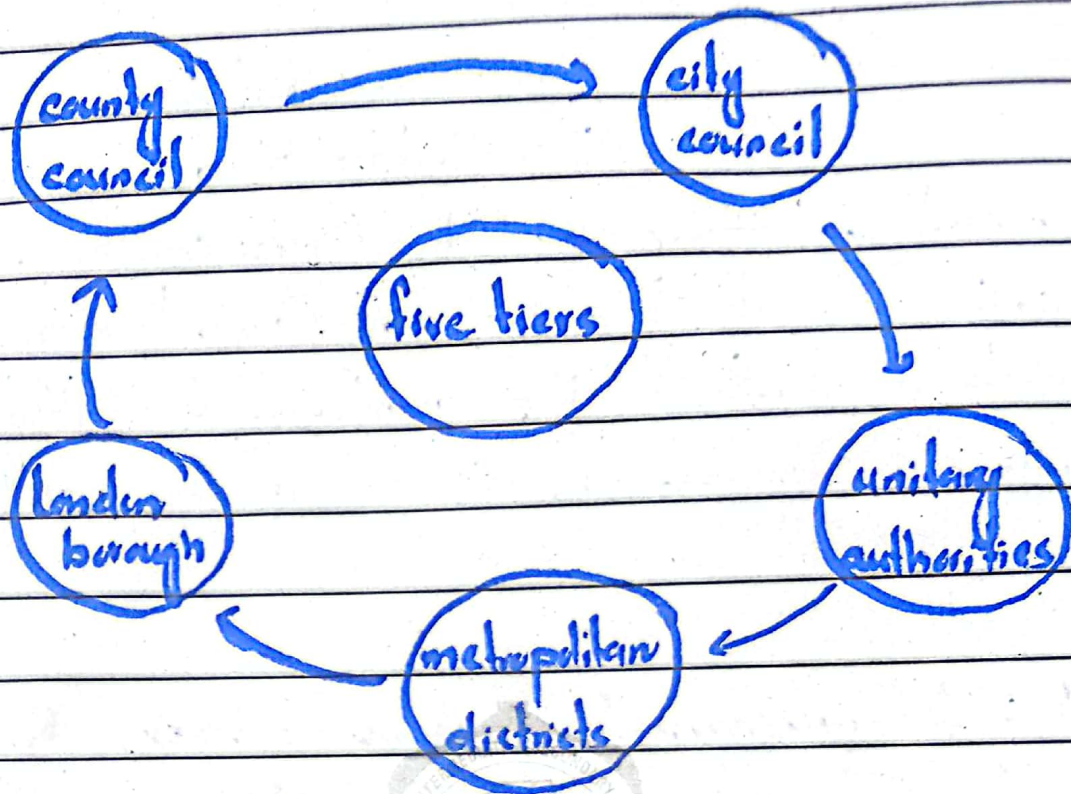 county
council
city
council
five tiers
unitary
authorities
metropolitan
districts
london
borough